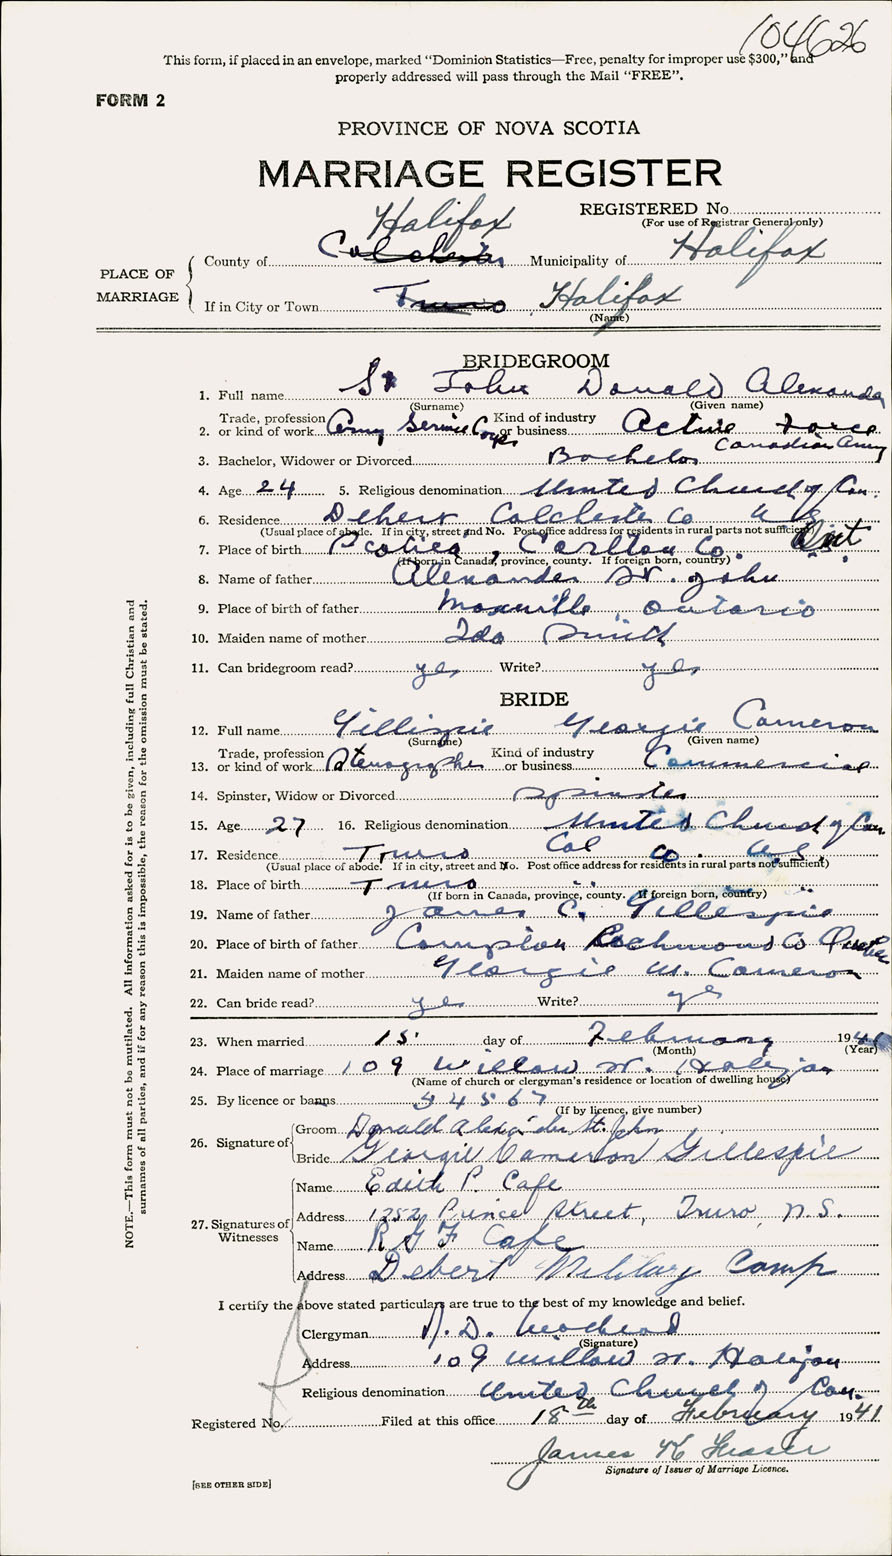 104626
This form, if placed in an envelope, marked "Dominion Statistics—Free, penalty for improper use $300," and
properly addressed will pass through the Mail "FREE".
FORM 2
PROVINCE OF NOVA SCOTIA
MARRIAGE REGISTER
REGISTERED No.
(For use of Registrar General only)
Halifax
PLACE OF MARRIAGE
County of Colchester Municipality of Halifax
If in City or Town Truro, Halifax
(Name)
BRIDEGROOM
1. Full name St John Donald Alexander
(Surname) (Given name)
2. Trade, profession or kind of work Army Service Corps Kind of industry or business Active Force
Canadian Army
3. Bachelor, Widower or Divorced Bachelor
4. Age 24 5. Religious denomination United Church of Can.
6. Residence Debert Colchester Co N S
(Usual place of abode. If in city, street and No. Post office address for residents in rural parts not sufficient)
7. Place of birth Carlton Co. Ont
(If born in Canada, province, county. If foreign born, country)
8. Name of father Alexander St. John
9. Place of birth of father Maxville Ontario
10. Maiden name of mother Ida Smith
11. Can bridegroom read? yes Write? yes
BRIDE
12. Full name Gillispie Georgie Cameron
(Surname) (Given name)
13. Trade, profession or kind of work Stenographer Kind of industry or business Commercial
14. Spinster, Widow or Divorced Spinster
15. Age 27 16. Religious denomination United Church of Can
17. Residence Truro Col Co. N.S.
(Usual place of abode. If in city, street and No. Post office address for residents in rural parts not sufficient)
18. Place of birth Truro " " "
(If born in Canada, province, county. If foreign born, country)
19. Name of father James C. Gillespie
20. Place of birth of father Compton Richmond Co Quebec
21. Maiden name of mother Georgie M. Cameron
22. Can bride read? yes Write? yes
23. When married 15 day of February 1941
(Month) (Year)
24. Place of marriage 109 Willow St. Halifax
(Name of church or clergyman's residence or location of dwelling house)
25. By licence or banns 34567
(If by licence, give number)
26. Signature of
Groom Donald Alexander St. John
Bride Georgie Cameron Gillespie
27. Signatures of Witnesses
Name Edith P. Cafe
Address 1252 Prince Street, Truro, N.S.
Name R G F Cafe
Address Debert Military Camp
I certify the above stated particulars are true to the best of my knowledge and belief.
Clergyman
(Signature)
Address 109 Willow St. Halifax
Religious denomination United Church of Can.
Registered No. Filed at this office 18th day of February 1941
James K Fraser
Signature of Issuer of Marriage Licence.
[SEE OTHER SIDE]
NOTE.—This form must not be mutilated. All information asked for is to be given, including full Christian and
surnames of all parties, and if for any reason this is impossible, the reason for the omission must be stated.